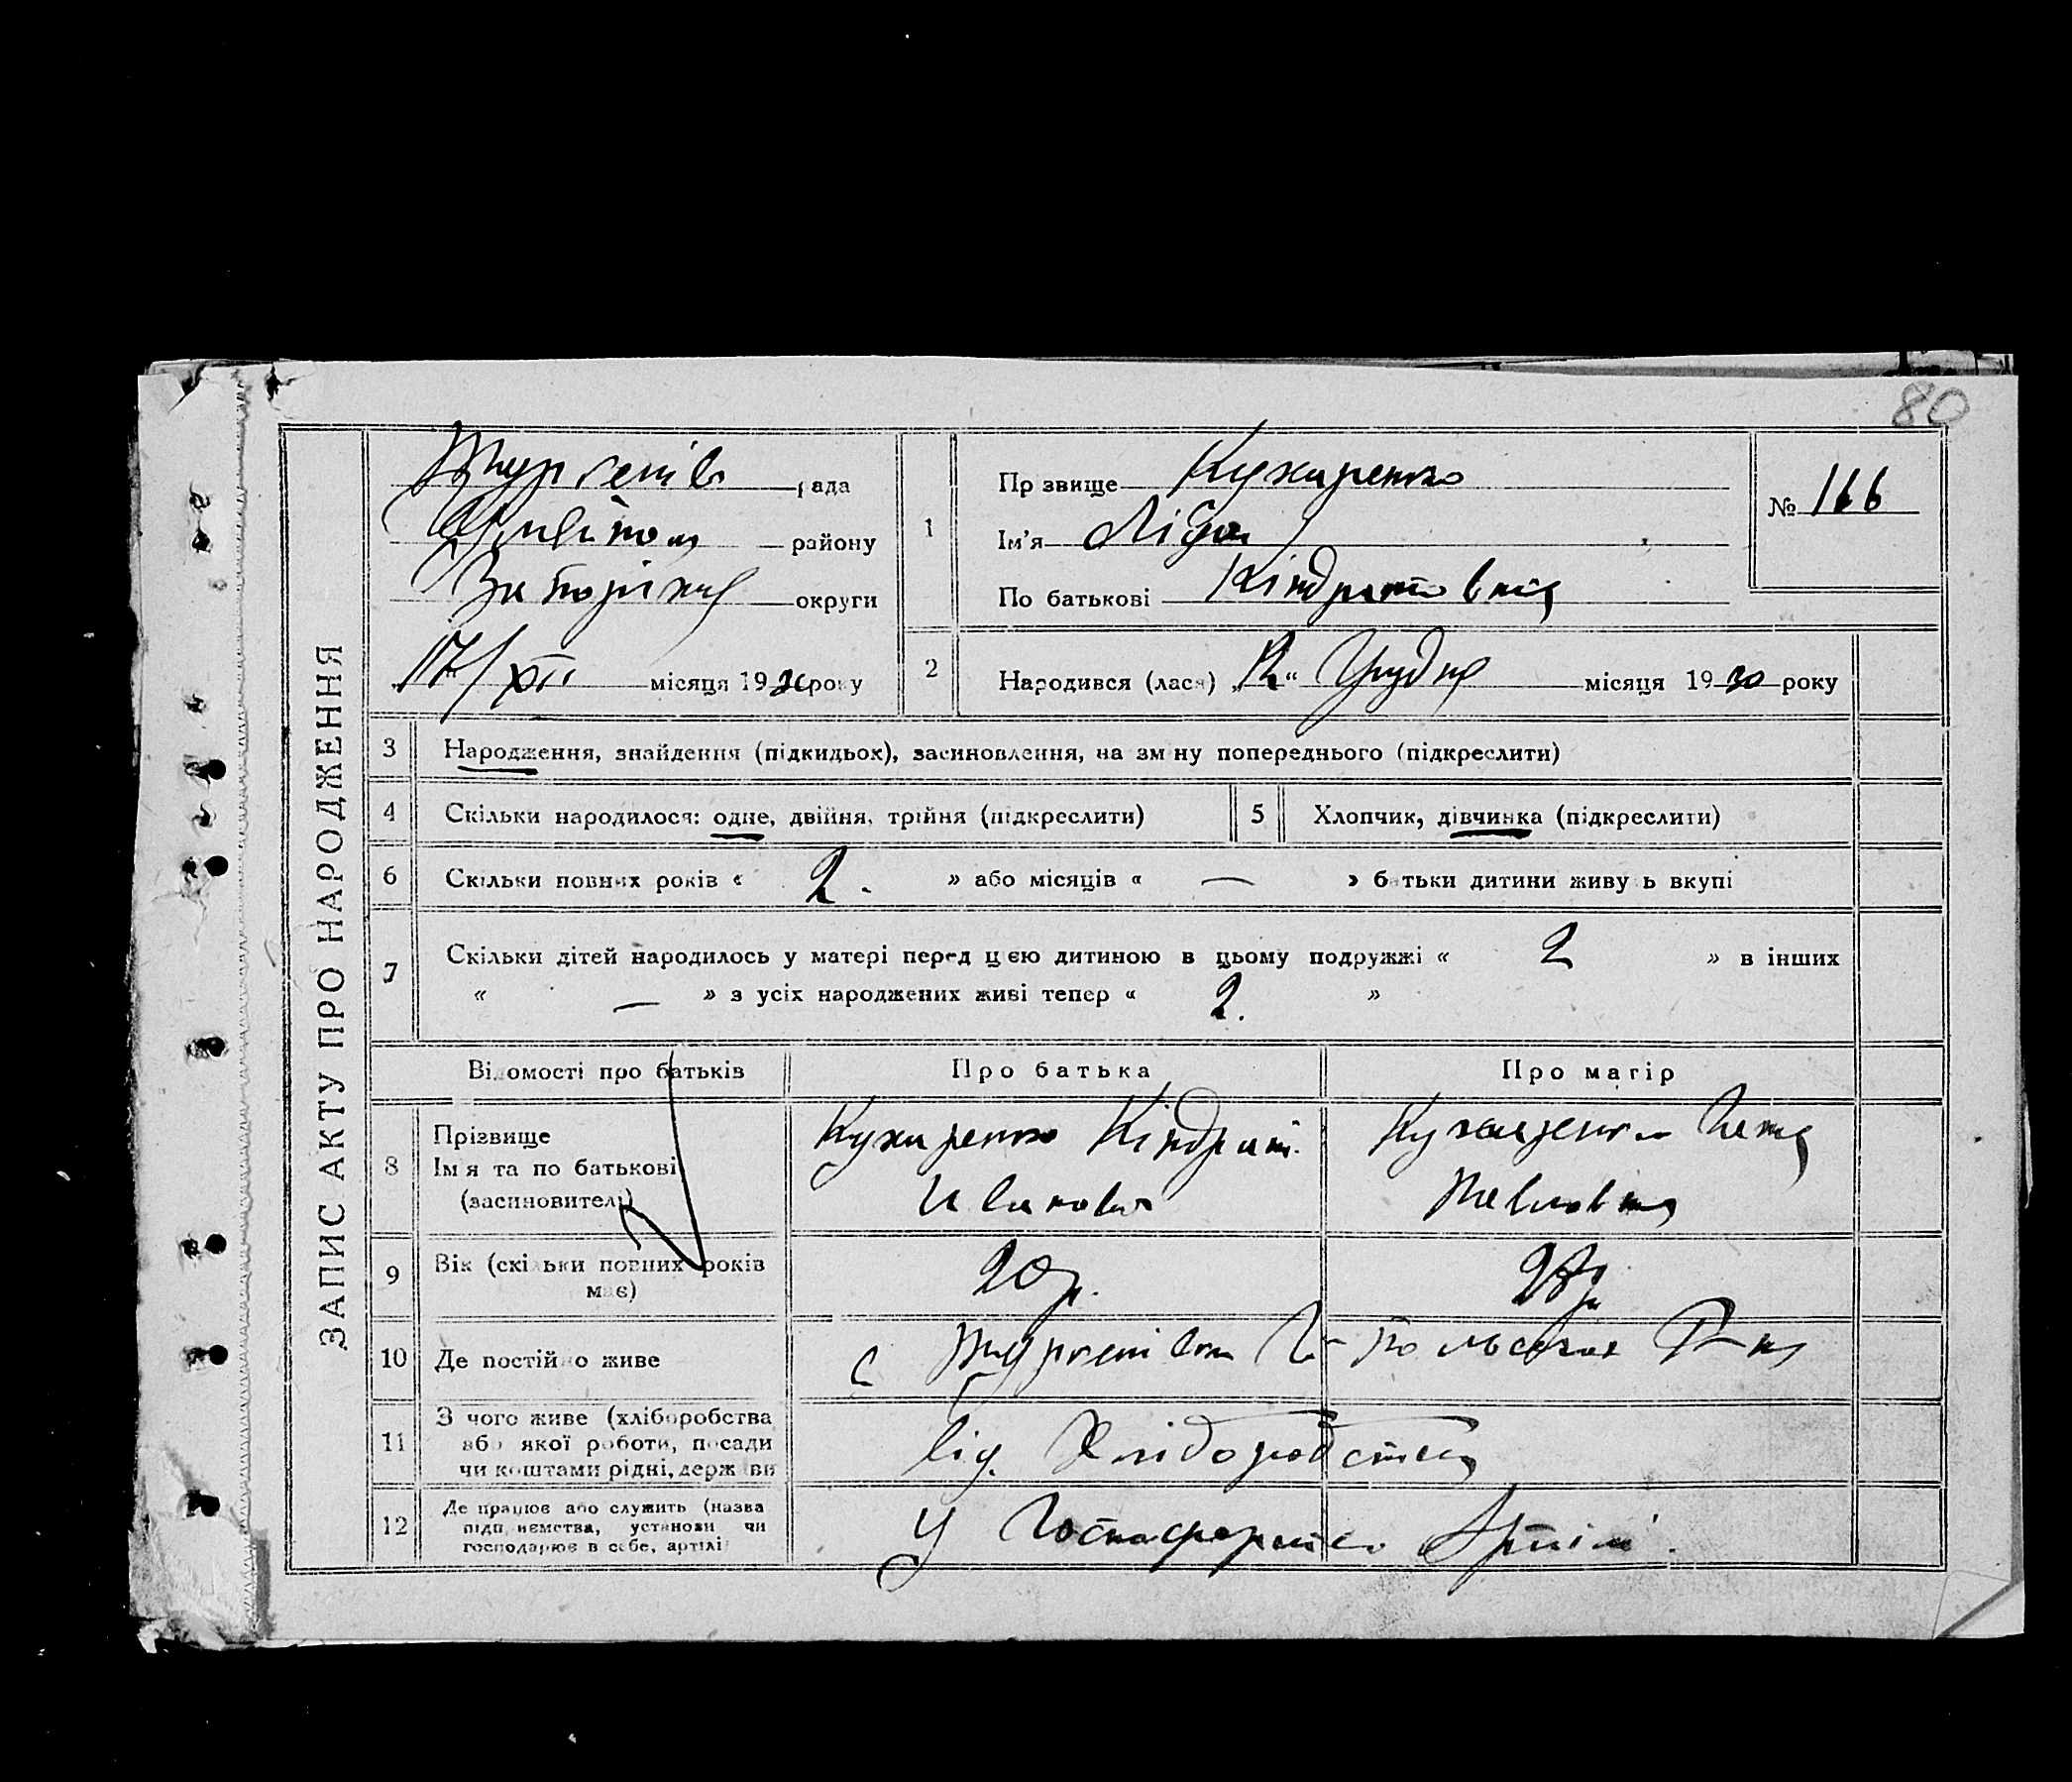 80
ЗАПИС АКТУ ПРО НАРОДЖЕННЯ
рада
району
округи
17/XII місяця 19 року
1
Пр звище Кухаренко
Ім'я Лідія
По батькові Кіндратовна
№ 166
2
Народився (лася) „12“ Грудня місяця 1930 року
3
Народження, знайдення (підкидьох), засиновлення, на зм ну попереднього (підкреслити)
4
Скільки народилося: одне, двійня, трійня (підкреслити)
5
Хлопчик, дівчинка (підкреслити)
6
Скільки повних років « 2. » або місяців « — » батьки дитини живу ь вкупі
7
Скільки дітей народилось у матері перед цією дитиною в цьому подружжі « 2 » в інших
« — » з усіх народжених живі тепер « 2. »
Відомості про батьків
Про батька
Про матір
8
Прізвище
Ім я та по батькові
(засиновителі)
Кухаренко Кіндрат
Иванович
Кухаренко
Павловна
9
Вік (скільки повних років
має)
10
Де постійно живе
с
11
З чого живе (хліборобства
або якої роботи, посади
чи коштами рідні, держ ви
від. Хліборобства
12
Де працює або служить (назва
підп иємства, установи чи
господарює в себе, артілі
У Артілі.